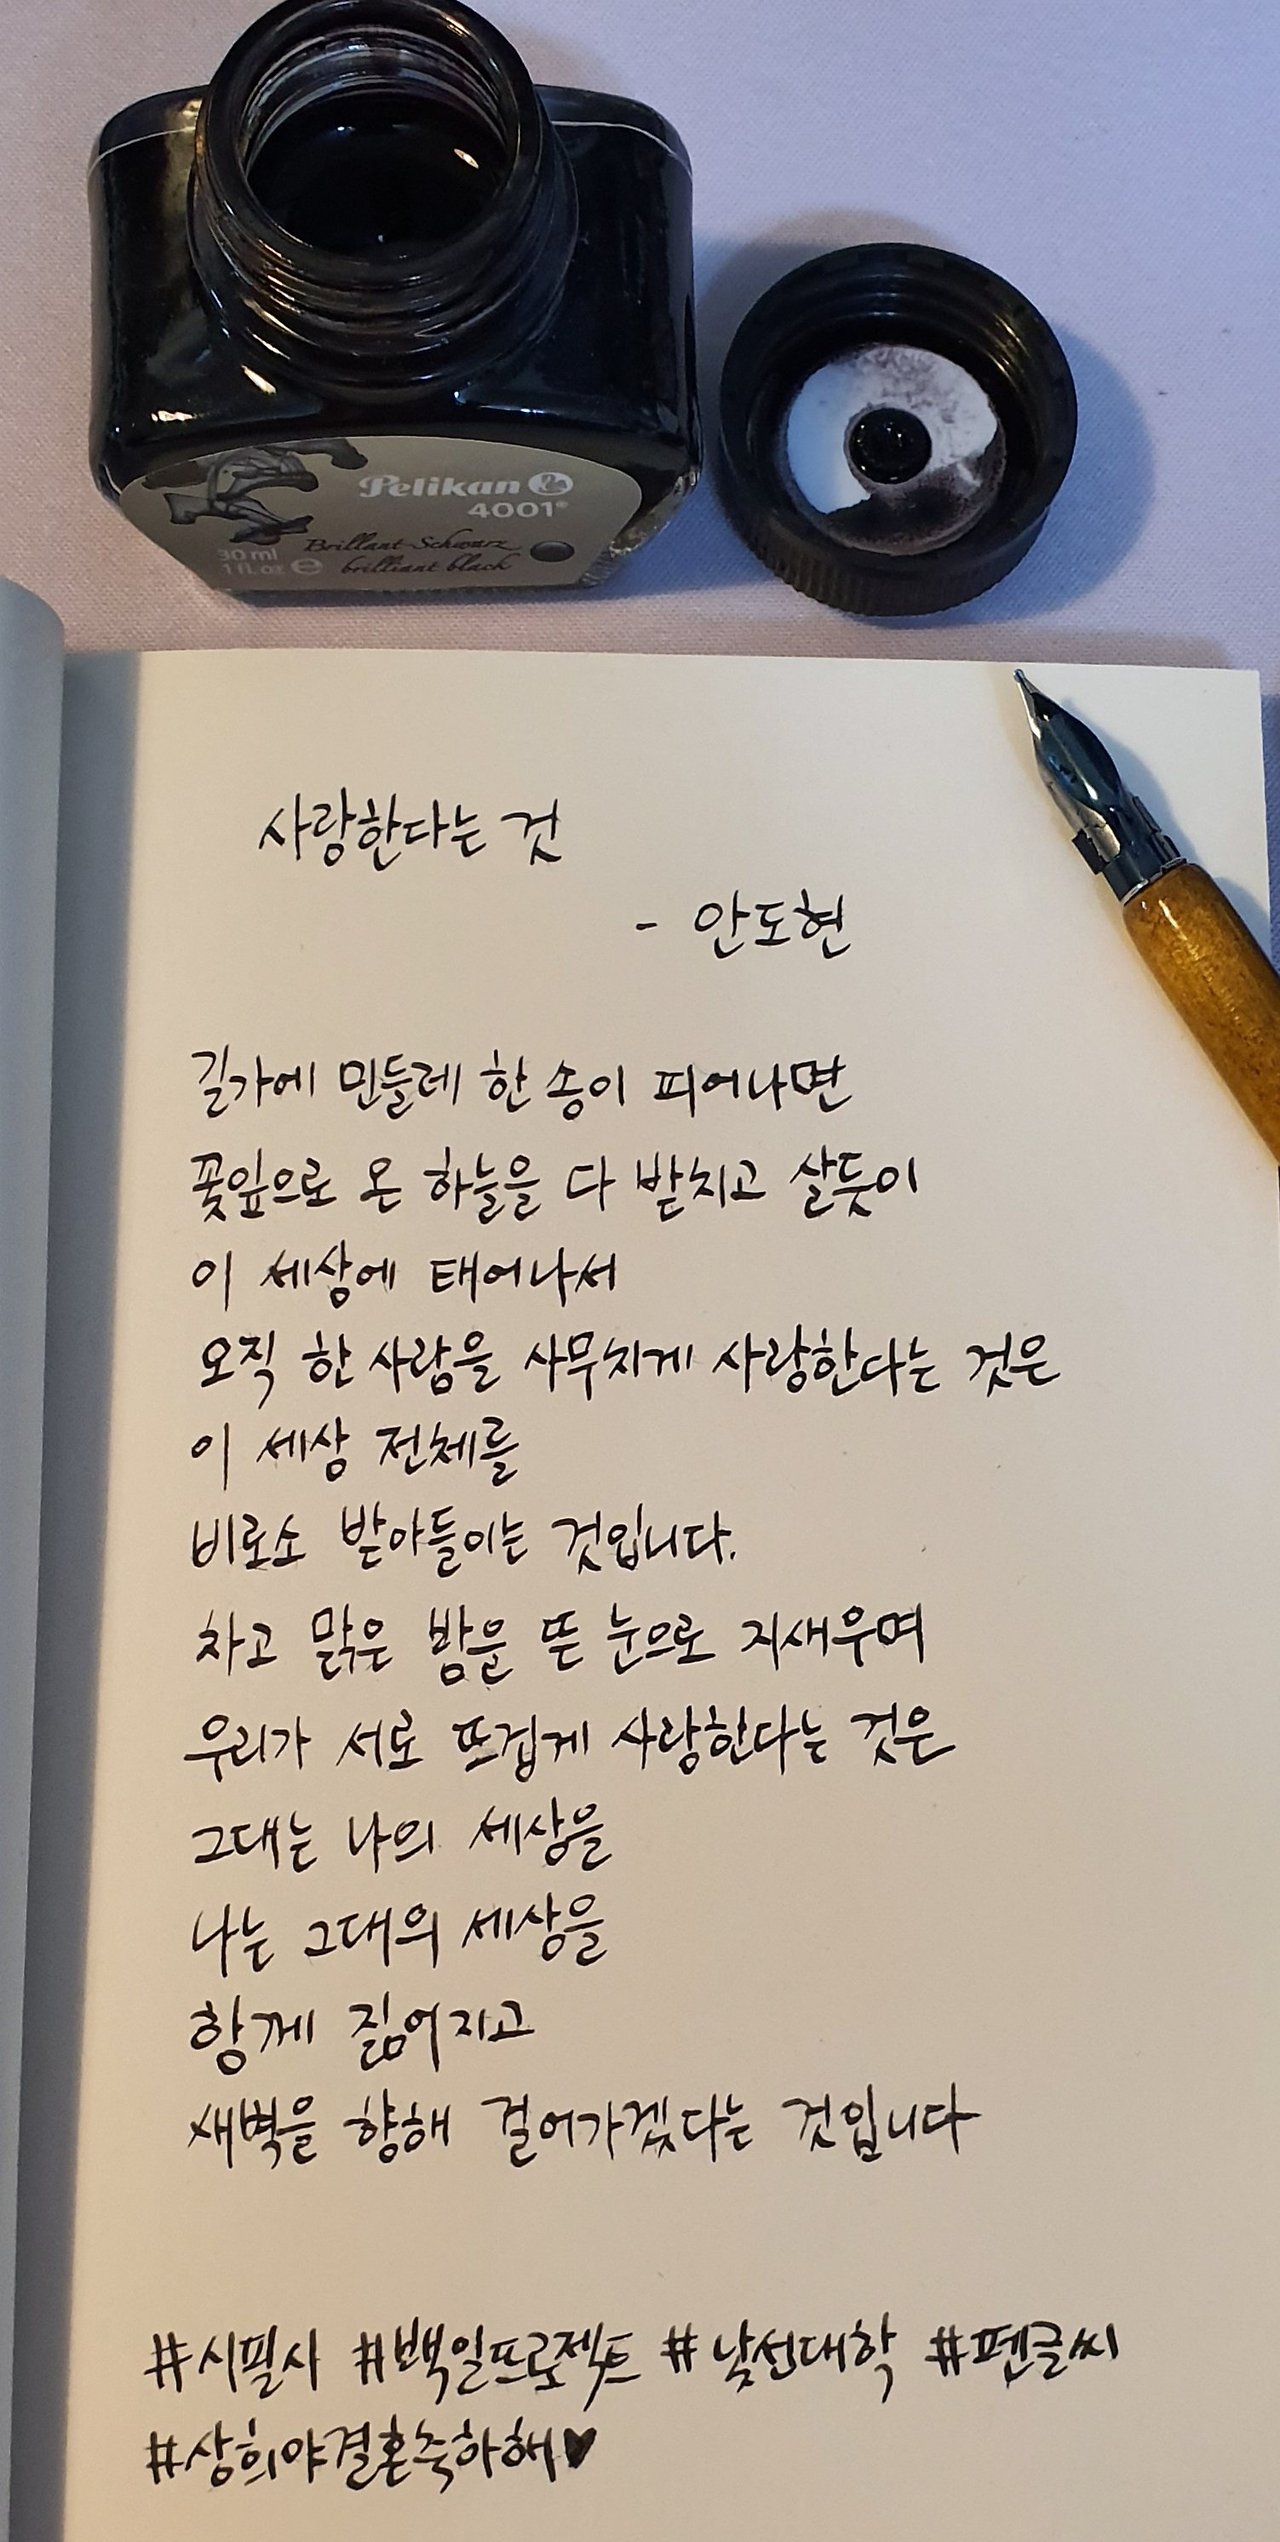 Pelikan
4001®
30 ml Brillant-Schwarz
1 fl. oz ℮ brilliant black
사랑한다는 것
- 안도현
길가에 민들레 한 송이 피어나면
꽃잎으로 온 하늘을 다 받치고 살듯이
이 세상에 태어나서
오직 한 사람을 사무치게 사랑한다는 것은
이 세상 전체를
비로소 받아들이는 것입니다.
차고 맑은 밤을 뜬 눈으로 지새우며
우리가 서로 뜨겁게 사랑한다는 것은
그대는 나의 세상을
나는 그대의 세상을
함께 짊어지고
새벽을 향해 걸어가겠다는 것입니다
#시필사 #백일프로젝트 #낯선대학 #펜글씨
#상희야결혼축하해♥